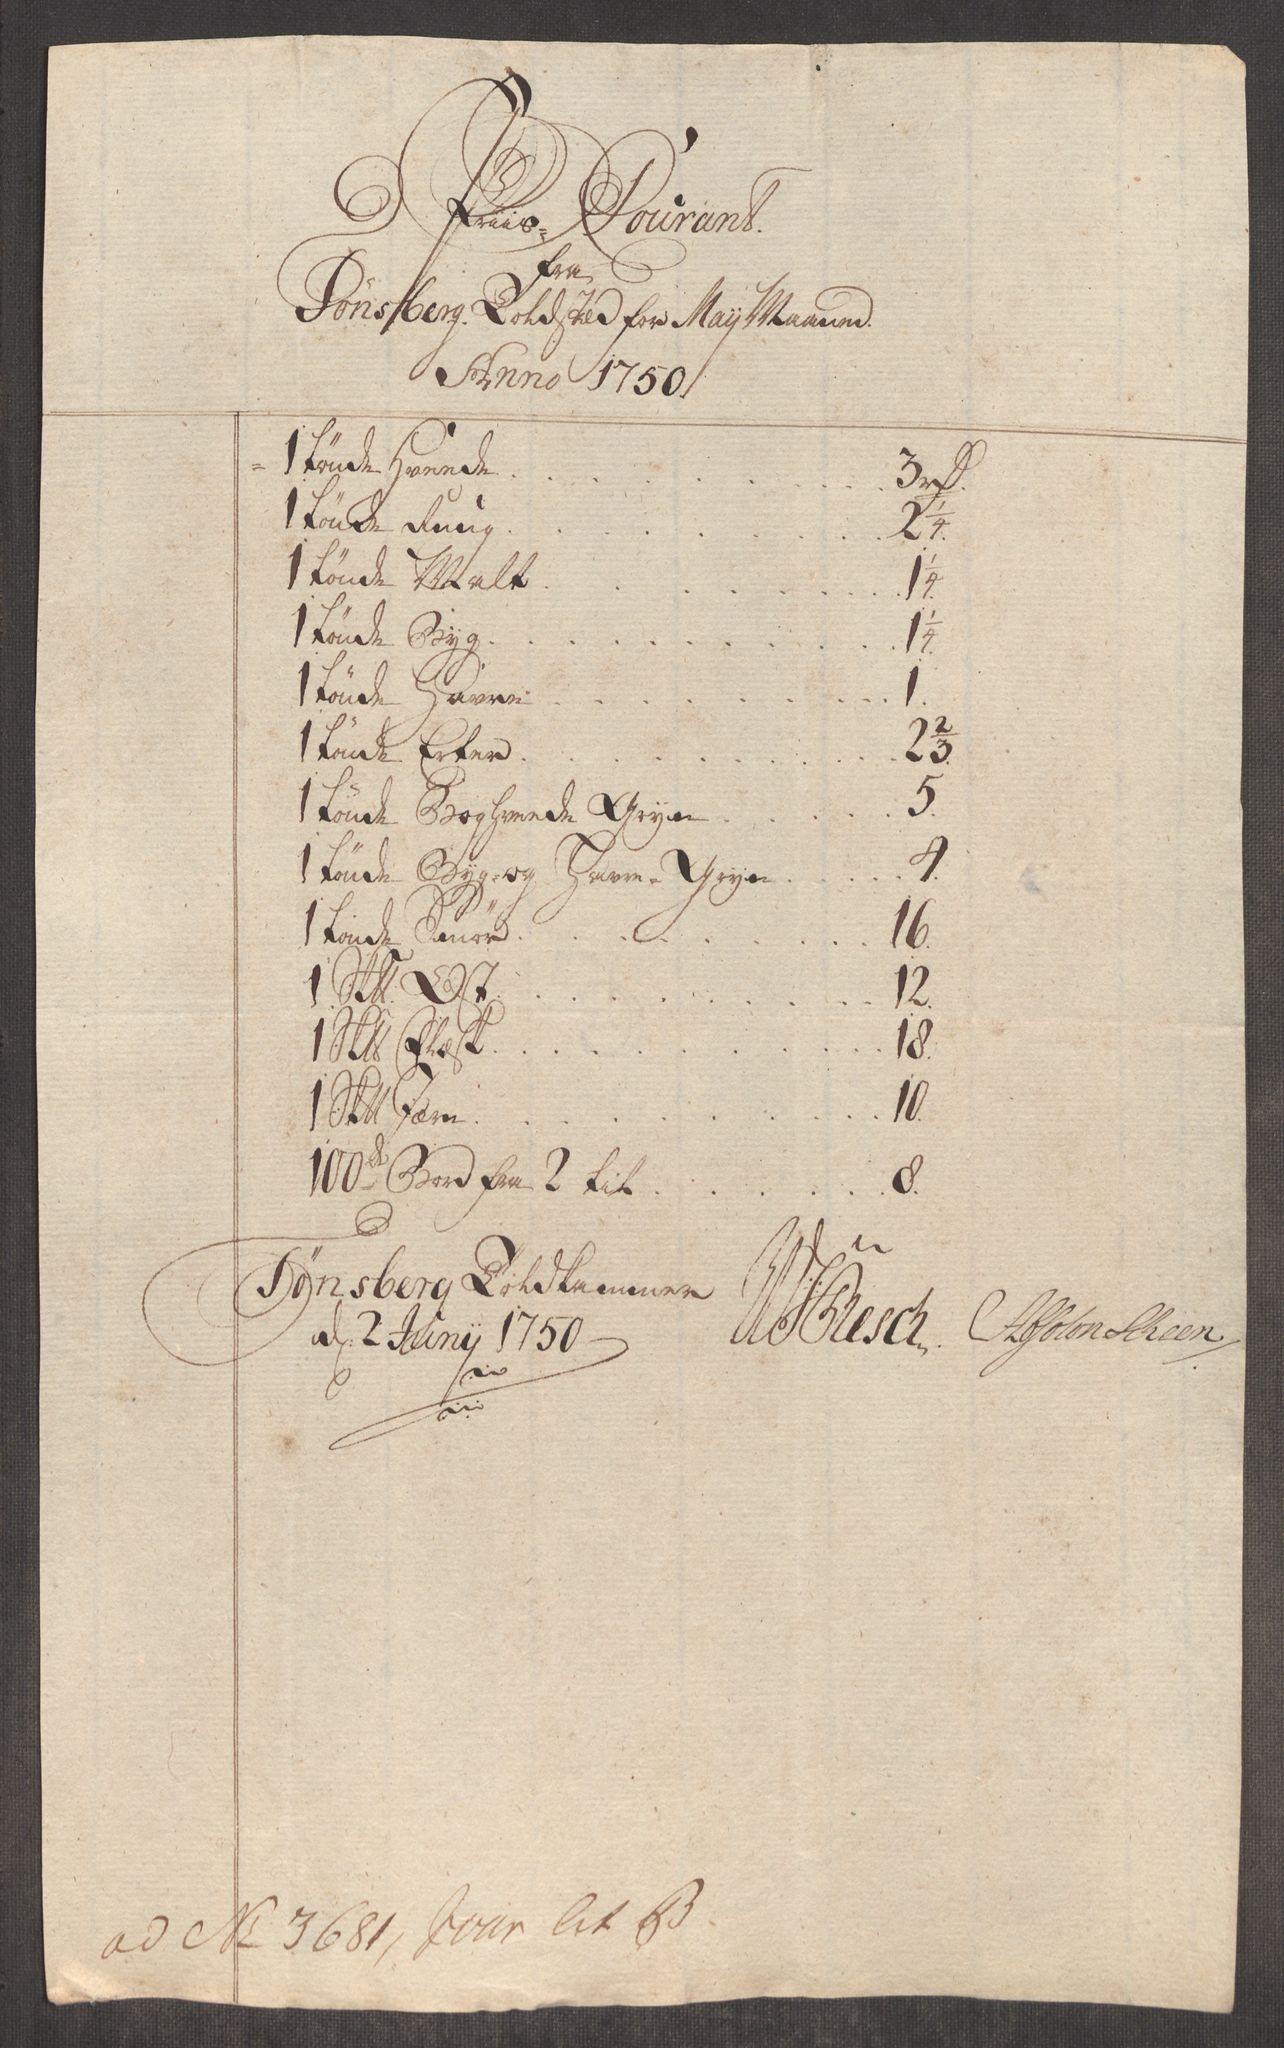 Priis-Courant.
fra
Tönsberg Toldsted for Maij Maaned.
Anno 1750.
1 tönde Hveede . . . 3 rd.
1 tönde Ruug . . . 2 1/4.
1 tönde Malt . . . 1 1/4.
1 tönde Byg . . . 1 1/4.
1 tönde Havre . . . 1.
1 tönde Erter . . . 2 2/3.
1 tönde Boghveede Gryn . . . 5.
1 tönde Byg- og Havre-Gryn . . . 4.
1 tönde Smör . . . 16.
1 Ost . . . 12.
1 Flesk . . . 18.
1 Jern . . . 10.
100de Bord fra 2 til . . . 8.
Tönsberg Toldkammer
d. 2 Junij 1750
Resch. Absolon Scheen
ad No 3681, Jour lit B.